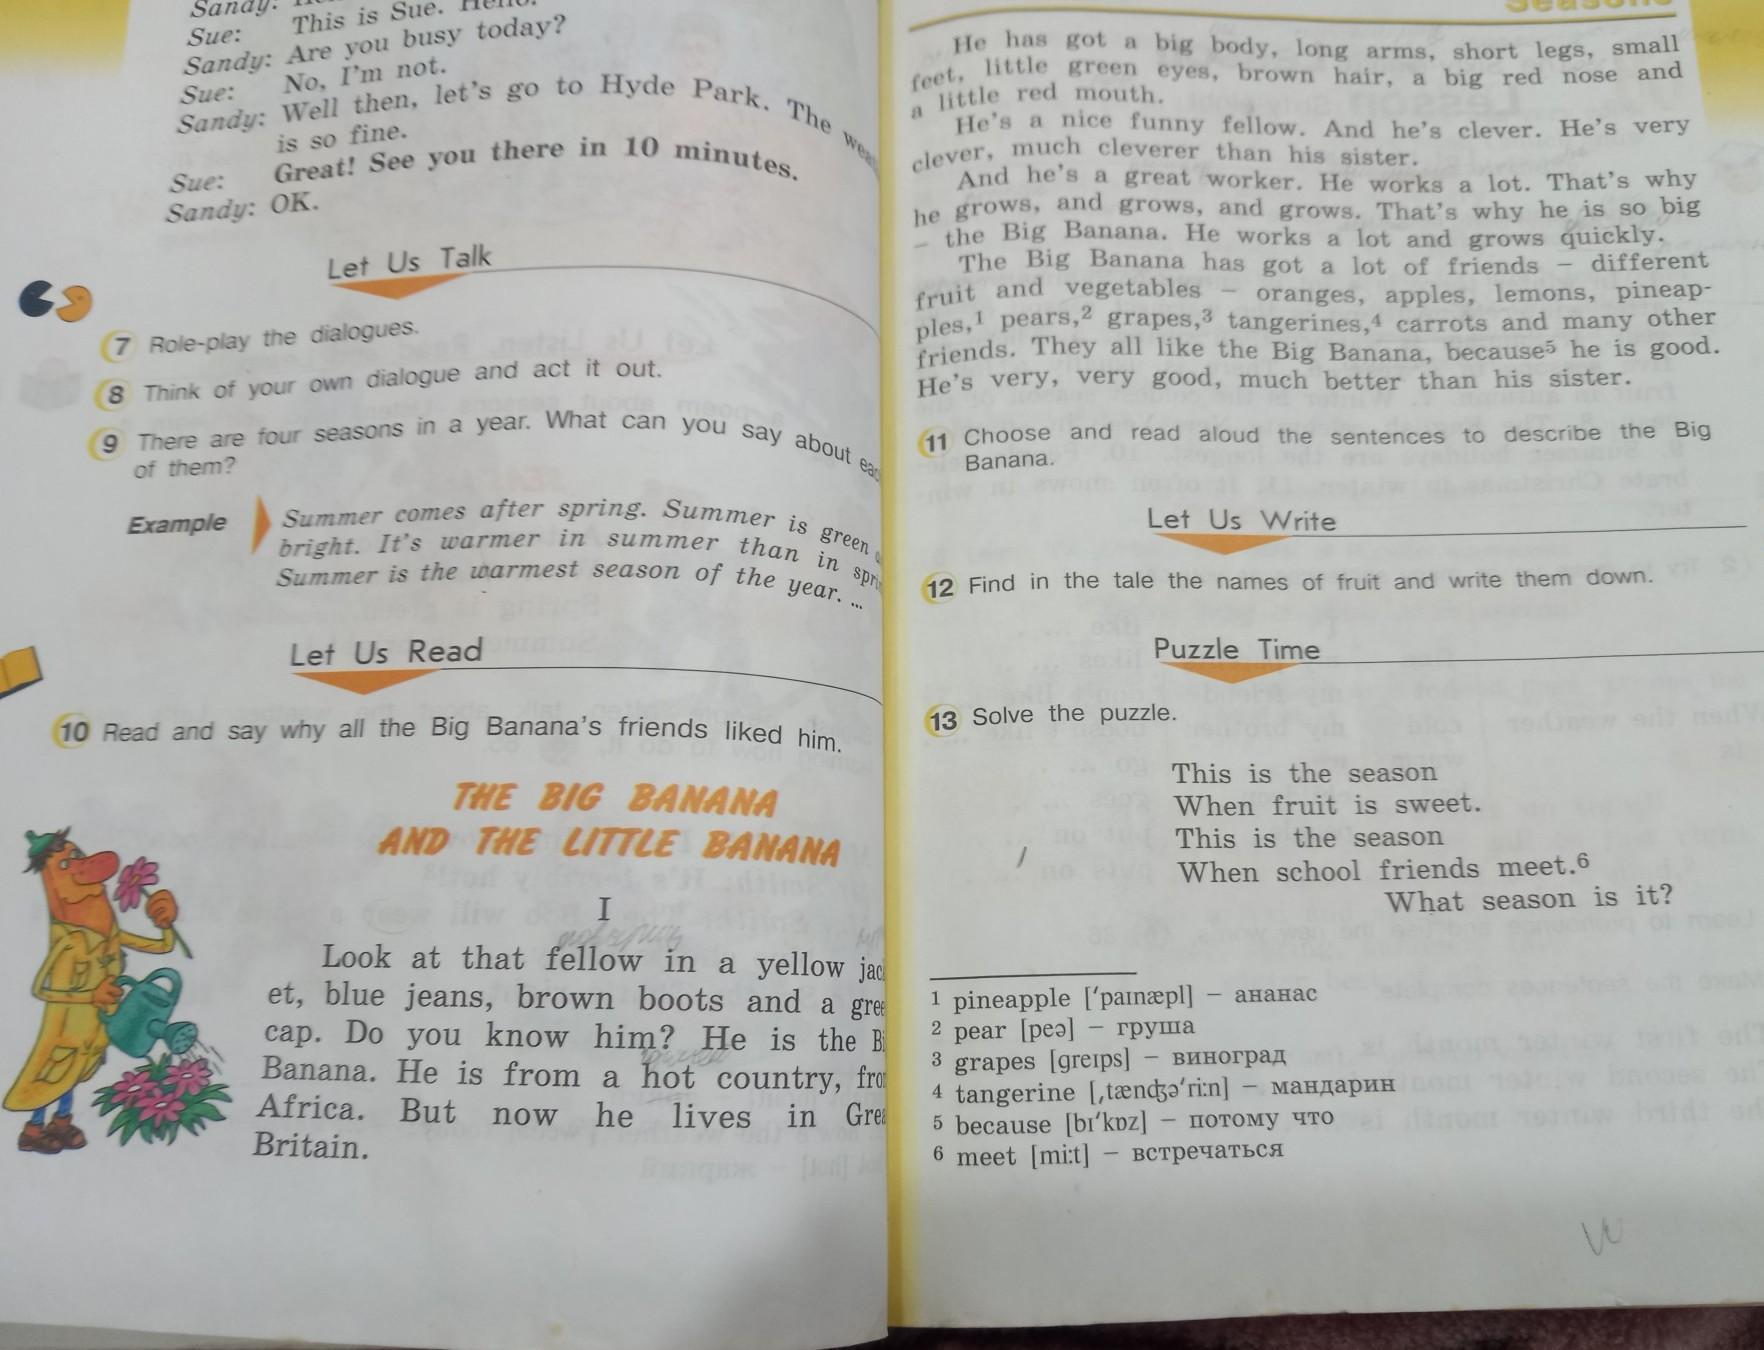 Sandy:
Sue: This is Sue. Hello.
Sandy: Are you busy today?
Sue: No, I'm not.
Sandy: Well then, let's go to Hyde Park. The
is so fine.
Sue: Great! See you there in 10 minutes.
Sandy: OK.
Let Us Talk
7 Role-play the dialogues.
8 Think of your own dialogue and act it out.
9 There are four seasons in a year. What can you say about
of them?
Example Summer comes after spring. Summer is green
bright. It's warmer in summer than in
Summer is the warmest season of the year. ...
Let Us Read
10 Read and say why all the Big Banana's friends liked him.
THE BIG BANANA
AND THE LITTLE BANANA
I
Look at that fellow in a yellow jac
et, blue jeans, brown boots and a gree
cap. Do you know him? He is the Bi
Banana. He is from a hot country, fro
Africa. But now he lives in Grea
Britain.
Seasons
He has got a big body, long arms, short legs, small
feet, little green eyes, brown hair, a big red nose and
a little red mouth.
He's a nice funny fellow. And he's clever. He's very
clever, much cleverer than his sister.
And he's a great worker. He works a lot. That's why
he grows, and grows, and grows. That's why he is so big
– the Big Banana. He works a lot and grows quickly.
The Big Banana has got a lot of friends – different
fruit and vegetables – oranges, apples, lemons, pineap-
ples,1 pears,2 grapes,3 tangerines,4 carrots and many other
friends. They all like the Big Banana, because5 he is good.
He's very, very good, much better than his sister.
11 Choose and read aloud the sentences to describe the Big
Banana.
Let Us Write
12 Find in the tale the names of fruit and write them down.
Puzzle Time
13 Solve the puzzle.
This is the season
When fruit is sweet.
This is the season
When school friends meet.6
What season is it?
1 pineapple [ˈpaɪnæpl] – ананас
2 pear [peə] – груша
3 grapes [greɪps] – виноград
4 tangerine [ˌtænʤəˈriːn] – мандарин
5 because [bɪˈkɒz] – потому что
6 meet [miːt] – встречаться